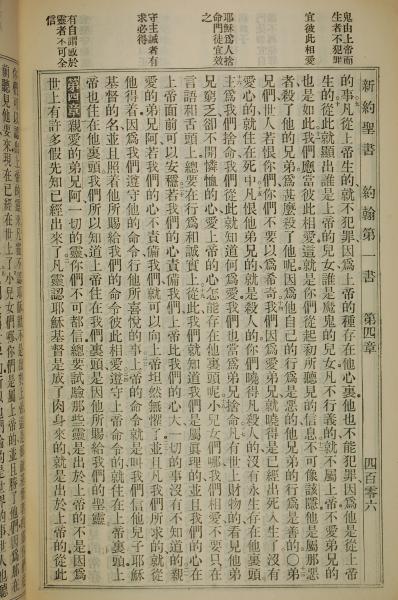 新約聖書 約翰第一書 第四章 四百零六
由上帝而
生者不犯罪
宜彼此相愛
耶穌爲人捨
命門徒宜效
之
守主誡者有
求必得
有自謂或於
靈者不可全
信
的事凡從上帝生的就不犯罪因爲上帝的種存在他心裏他也不能犯罪因爲他是從上帝
生的從此就顯出誰是上帝的兒女誰是魔鬼的兒女凡不行義的就不屬上帝不愛弟兄的
也是如此我們應當彼此相愛這就是你們從起初所聽見的信息不可像該隱他是屬那惡
者殺了他的兄弟爲甚麼殺了他呢因爲他自己的行爲是惡的他兄弟的行爲是善的○弟
兄們世人若恨你們你們不要以爲希奇我們因爲愛弟兄就曉得是已經出死入生了沒有
愛心的就住在死中凡恨他弟兄的就是殺人的你們曉得凡殺人的沒有永生存在他裏面
主爲我們捨命我們從此就知道何爲愛我們也當爲弟兄捨命凡有世上財物的看見他弟
兄窮乏卻不開憐恤的心愛上帝的心怎能存在他裏頭呢小兒女們哪我們相愛不要只在
言語和舌頭上總要在行爲和誠實上從此我們就知道我們是屬眞理的並且我們的心在
上帝面前可以安穩若我們的心責備我們上帝比我們的心大一切的事沒有不知道的親
愛的弟兄阿若我們的心不責備我們就可以向上帝坦然無懼了並且凡我們所求的就從
他得着因爲我們遵守他的命令行他所喜悅的事上帝的命令就是叫我們信他兒子耶穌
基督的名並且照着他所賜給我們的命令彼此相愛遵守上帝命令的就住在上帝裏頭上
帝也住在他裏頭我們所以知道上帝住在我們裏頭是因他所賜給我們的聖靈
第四章 親愛的弟兄阿一切的靈你們不可都信總要試驗那些靈是出於上帝的不是因爲
世上有許多假先知已經出來了凡靈認耶穌基督是成了肉身來的就是出於上帝的從此